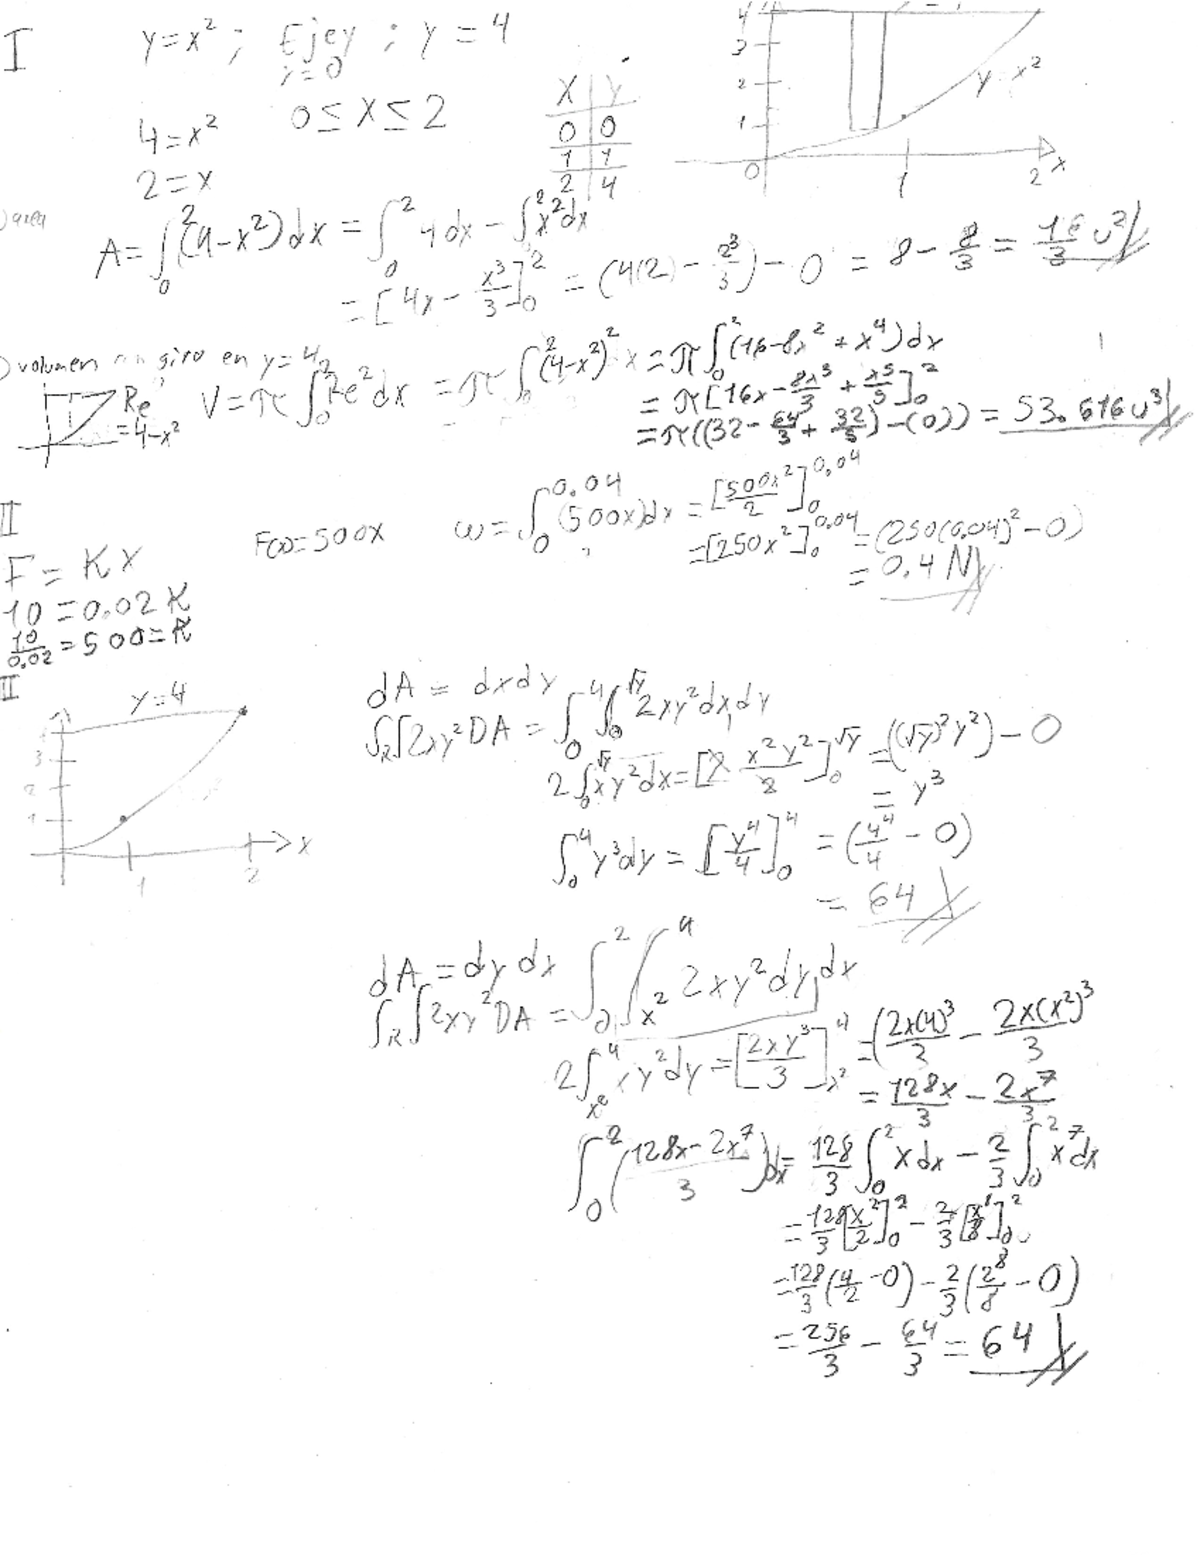 I
y=x²; Ejey ; y=4
x=0
4=x²
0≤x≤2
2=x
X Y
0 0
1 1
2 4
4
3
2
1
0
1
2
x
y=x²
area
A=∫₀²(4-x²)dx = ∫₀² 4dx - ∫₀² x²dx
= [4x - x³/3]₀² = (4(2) - 2³/3) - 0 = 8 - 8/3 = 16/3 u²
) volumen giro en y=4
Re = 4-x²
V=π∫₀² Re² dx = π∫₀²(4-x²)² x = π∫₀²(16-8x²+x⁴)dx
= π[16x - 8x³/3 + x⁵/5]₀²
= π((32 - 64/3 + 32/5) - (0)) = 53.616 u³
II
F(x)=500x
w = ∫₀^0.04 (500x)dx = [500x²/2]₀^0,04
= [250x²]₀^0,04 = (250(0,04)² - 0)
= 0.4 N
F = Kx
10 = 0.02 K
10/0.02 = 500 = K
II
y=4
3
2
1
1
2
x
dA = dxdy
∫R∫2xy² DA = ∫₀⁴∫₀^√y 2xy² dx dy
2∫₀^√y xy²dx = [2 x²y²/2]₀^√y = ((√y)² y²) - 0
= y³
∫₀⁴ y³dy = [y⁴/4]₀⁴ = (4⁴/4 - 0)
= 64
dA = dy dx
∫R∫2xy² DA = ∫₀²∫x²⁴ 2xy² dy dx
2∫x²⁴ xy²dy = [2xy³/3]x²⁴ = (2x(4)³/3 - 2x(x²)³/3
= 128x/3 - 2x⁷/3
∫₀²(128x-2x⁷/3)dx = 128/3 ∫₀² xdx - 2/3 ∫₀² x⁷dx
= 128/3[x²/2]₀² - 2/3[x⁸/8]₀²
= 128/3(4/2 - 0) - 2/3(2⁸/8 - 0)
= 256/3 - 64/3 = 64